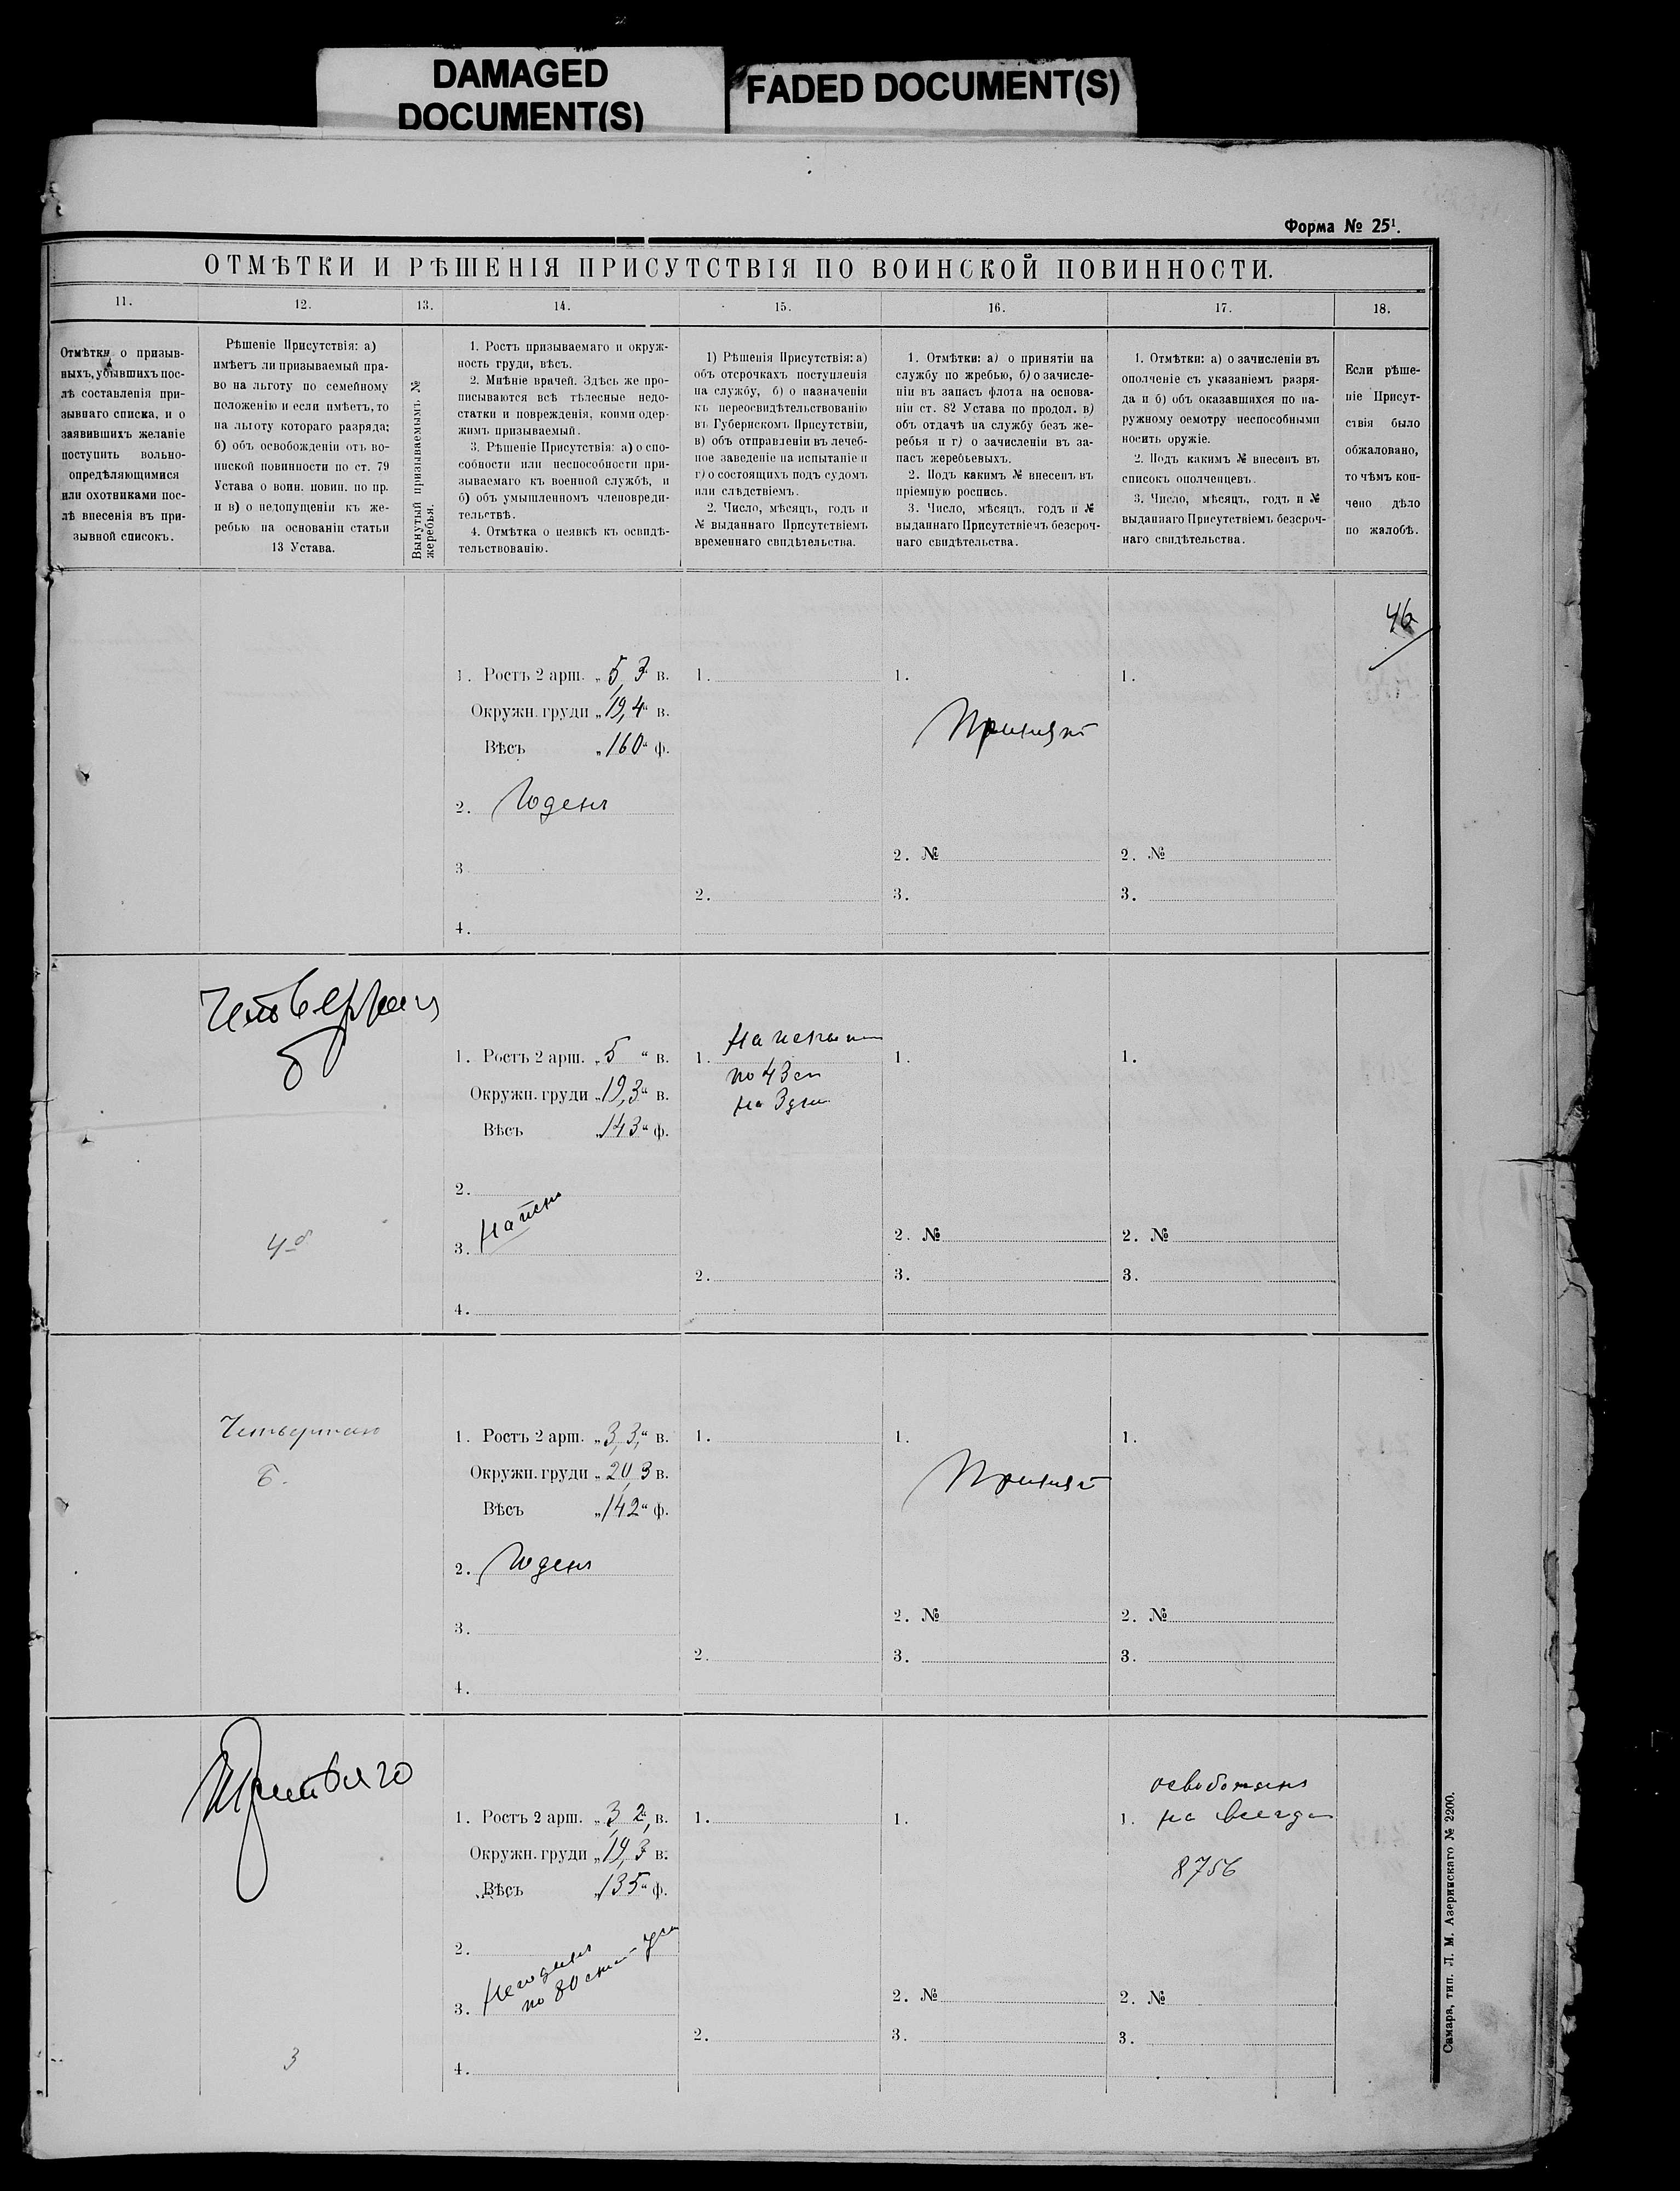 DAMAGED
DOCUMENT(S)
FADED DOCUMENT(S)
Форма № 25¹.
ОТМѢТКИ И РѢШЕНІЯ ПРИСУТСТВІЯ ПО ВОИНСКОЙ ПОВИННОСТИ.
11.
12.
13.
14.
15.
16.
17.
18.
Отмѣтки о призыв-
ныхъ, убывшихъ пос-
лѣ составленія при-
зывнаго списка, и о
заявившихъ желаніе
поступить вольно-
опредѣляющимися
или охотниками пос-
лѣ внесенія въ при-
зывной списокъ.
Рѣшеніе Присутствія: а)
имѣетъ ли призываемый пра-
во на льготу по семейному
положенію и если имѣетъ, то
на льготу котораго разряда;
б) объ освобожденіи отъ во-
инской повинности по ст. 79
Устава о воин. повин. по пр.
и в) о недопущеніи къ же-
ребью на основаніи статьи
13 Устава.
Вынутый призываемымъ №
жеребья.
1. Ростъ призываемаго и окруж-
ность груди, вѣсъ.
2. Мнѣніе врачей. Здѣсь же про-
писываются всѣ тѣлесные недо-
статки и поврежденія, коими одер-
жимъ призываемый.
3. Рѣшеніе Присутствія: а) о спо-
собности или неспособности при-
зываемаго къ военной службѣ, и
б) объ умышленномъ членовреди-
тельствѣ.
4. Отмѣтка о неявкѣ къ освидѣ-
тельствованію.
1) Рѣшенія Присутствія: а)
объ отсрочкахъ поступленія
на службу, б) о назначеніи
къ переосвидѣтельствованію
въ Губернскомъ Присутствіи,
в) объ отправленіи въ лечеб-
ное заведеніе на испытаніе и
г) о состоящихъ подъ судомъ
или слѣдствіемъ.
2. Число, мѣсяцъ, годъ и
№ выданнаго Присутствіемъ
временнаго свидѣтельства.
1. Отмѣтки: а) о принятіи на
службу по жребью, б) о зачисле-
ніи въ запасъ флота на основа-
ніи ст. 82 Устава по продол. в)
объ отдачѣ на службу безъ же-
ребья и г) о зачисленіи въ за-
пасъ жеребьевыхъ.
2. Подъ какимъ № внесенъ въ
пріемную роспись.
3. Число, мѣсяцъ, годъ и №
выданнаго Присутствіемъ безсроч-
наго свидѣтельства.
1. Отмѣтки: а) о зачисленіи въ
ополченіе съ указаніемъ разря-
да и б) объ оказавшихся по на-
ружному осмотру неспособными
носить оружіе.
2. Подъ какимъ № внесенъ въ
списокъ ополченцевъ.
3. Число, мѣсяцъ, годъ и №
выданнаго Присутствіемъ безсроч-
наго свидѣтельства.
Если рѣше-
ніе Присут-
ствія было
обжаловано,
то чѣмъ кон-
чено дѣло
по жалобѣ.
46
1. Ростъ 2 арш. „5,3 в.
Окружн. груди „19,4“ в.
Вѣсъ „160“ ф.
2. Годенъ
3
4.
1.
2.
1.
Принятъ
2. №
3.
1.
2. №
3.
Четвертаго
б
4 б
1. Ростъ 2 арш. „5 “ в.
Окружн. груди „19,3“ в.
Вѣсъ „143“ ф.
2.
3. На исп
4.
1. На испыт
по 43 ст
на 3 дня
2.
1.
2. №
3.
1.
2. №
3.
Четвертаго
б.
1. Ростъ 2 арш. „3,3“ в.
Окружн. груди „20,3 в.
Вѣсъ „142“ ф.
2. Годенъ
3.
4.
1.
2.
1.
Принятъ
2. №
3.
1.
2. №
3.
Третьяго
3
1. Ростъ 2 арш. „3,2 в.
Окружн. груди „19,3 в.
Вѣсъ „135“ ф.
2.
3. Негоденъ
по 80 стат
4.
1.
2.
1.
2. №
3.
освобожденъ
1. на всегда
8756
2. №
3.
Самара, тип. Л. М. Азеринскаго № 2200.